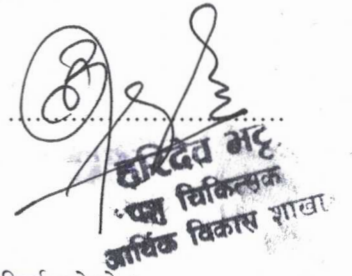 हरिदेव भट्ट
पशु चिकित्सक
आर्थिक विकास शाखा